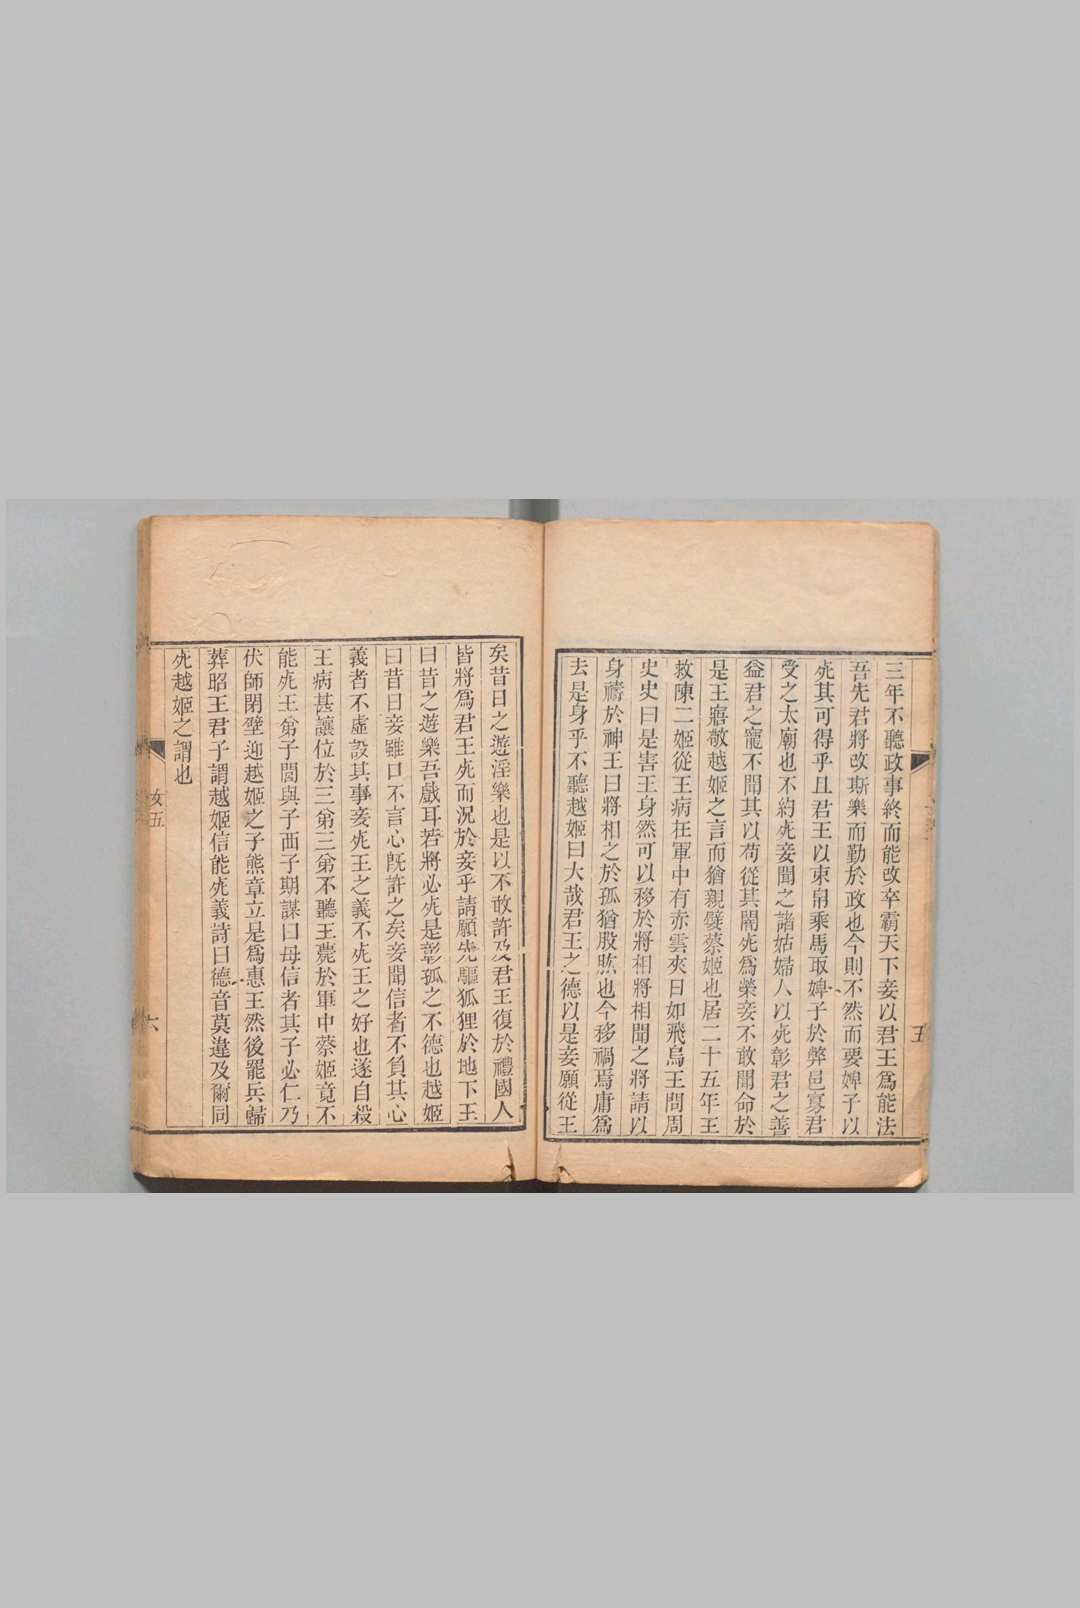 三年不聽政事終而能改卒霸天下妾以君王爲能法
吾先君將改斯樂而勤於政也今則不然而要婢子以
死其可得乎且君王以束帛乘馬取婢子於弊邑寡君
受之太廟也不約死妾聞之諸姑婦人以死彰君之善
益君之寵不聞其以苟從其闇死爲榮妾不敢聞命於
是王寤敬越姬之言而猶親嬖蔡姬也居二十五年王
救陳二姬從王病在軍中有赤雲夾日如飛烏王問周
史史曰是害王身然可以移於將相將相聞之將請以
身禱於神王曰將相之於孤猶股肱也今移禍焉庸爲
去是身乎不聽越姬曰大哉君王之德以是妾願從王
五
矣昔日之遊淫樂也是以不敢許及君王復於禮國人
皆將爲君王死而況於妾乎請願先驅狐狸於地下王
曰昔之遊樂吾戲耳若將必死是彰孤之不德也越姬
曰昔日妾雖口不言心既許之矣妾聞信者不負其心
義者不虛設其事妾死王之義不死王之好也遂自殺
王病甚讓位於三弟三弟不聽王薨於軍中蔡姬竟不
能死王弟子閭與子西子期謀曰母信者其子必仁乃
伏師閉壁迎越姬之子熊章立是爲惠王然後罷兵歸
葬昭王君子謂越姬信能死義詩曰德音莫違及爾同
死越姬之謂也
女五
六